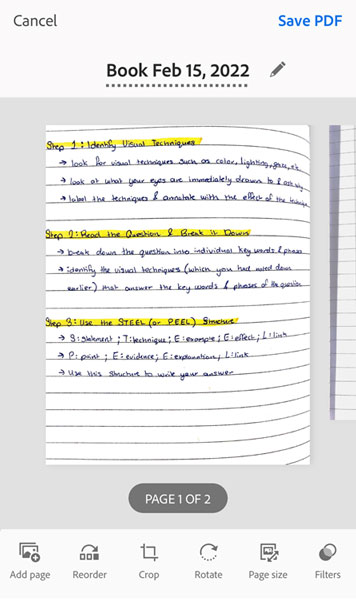 Cancel
Save PDF
Book Feb 15, 2022
Step 1: Identify Visual Techniques
→ look for visual techniques such as color, lighting, gaze, etc
→ look at what your eyes are immediately drawn to &
→ label the techniques & annotate with the effect of the technique
Step 2: Read the Question & Break it Down
→ break down the question into individual key words & phrases
→ identify the visual techniques (which you had noted down
earlier) that answer the key words & phrases of the question
Step 3: Use the STEEL (or PEEL) Structure
→ S: statement ; T: technique ; E: example ; E: effect ; L: link
→ P: point ; E: evidence ; E: explanation ; L: link
→ Use this structure to write your answer
PAGE 1 OF 2
Add page
Reorder
Crop
Rotate
Page size
Filters